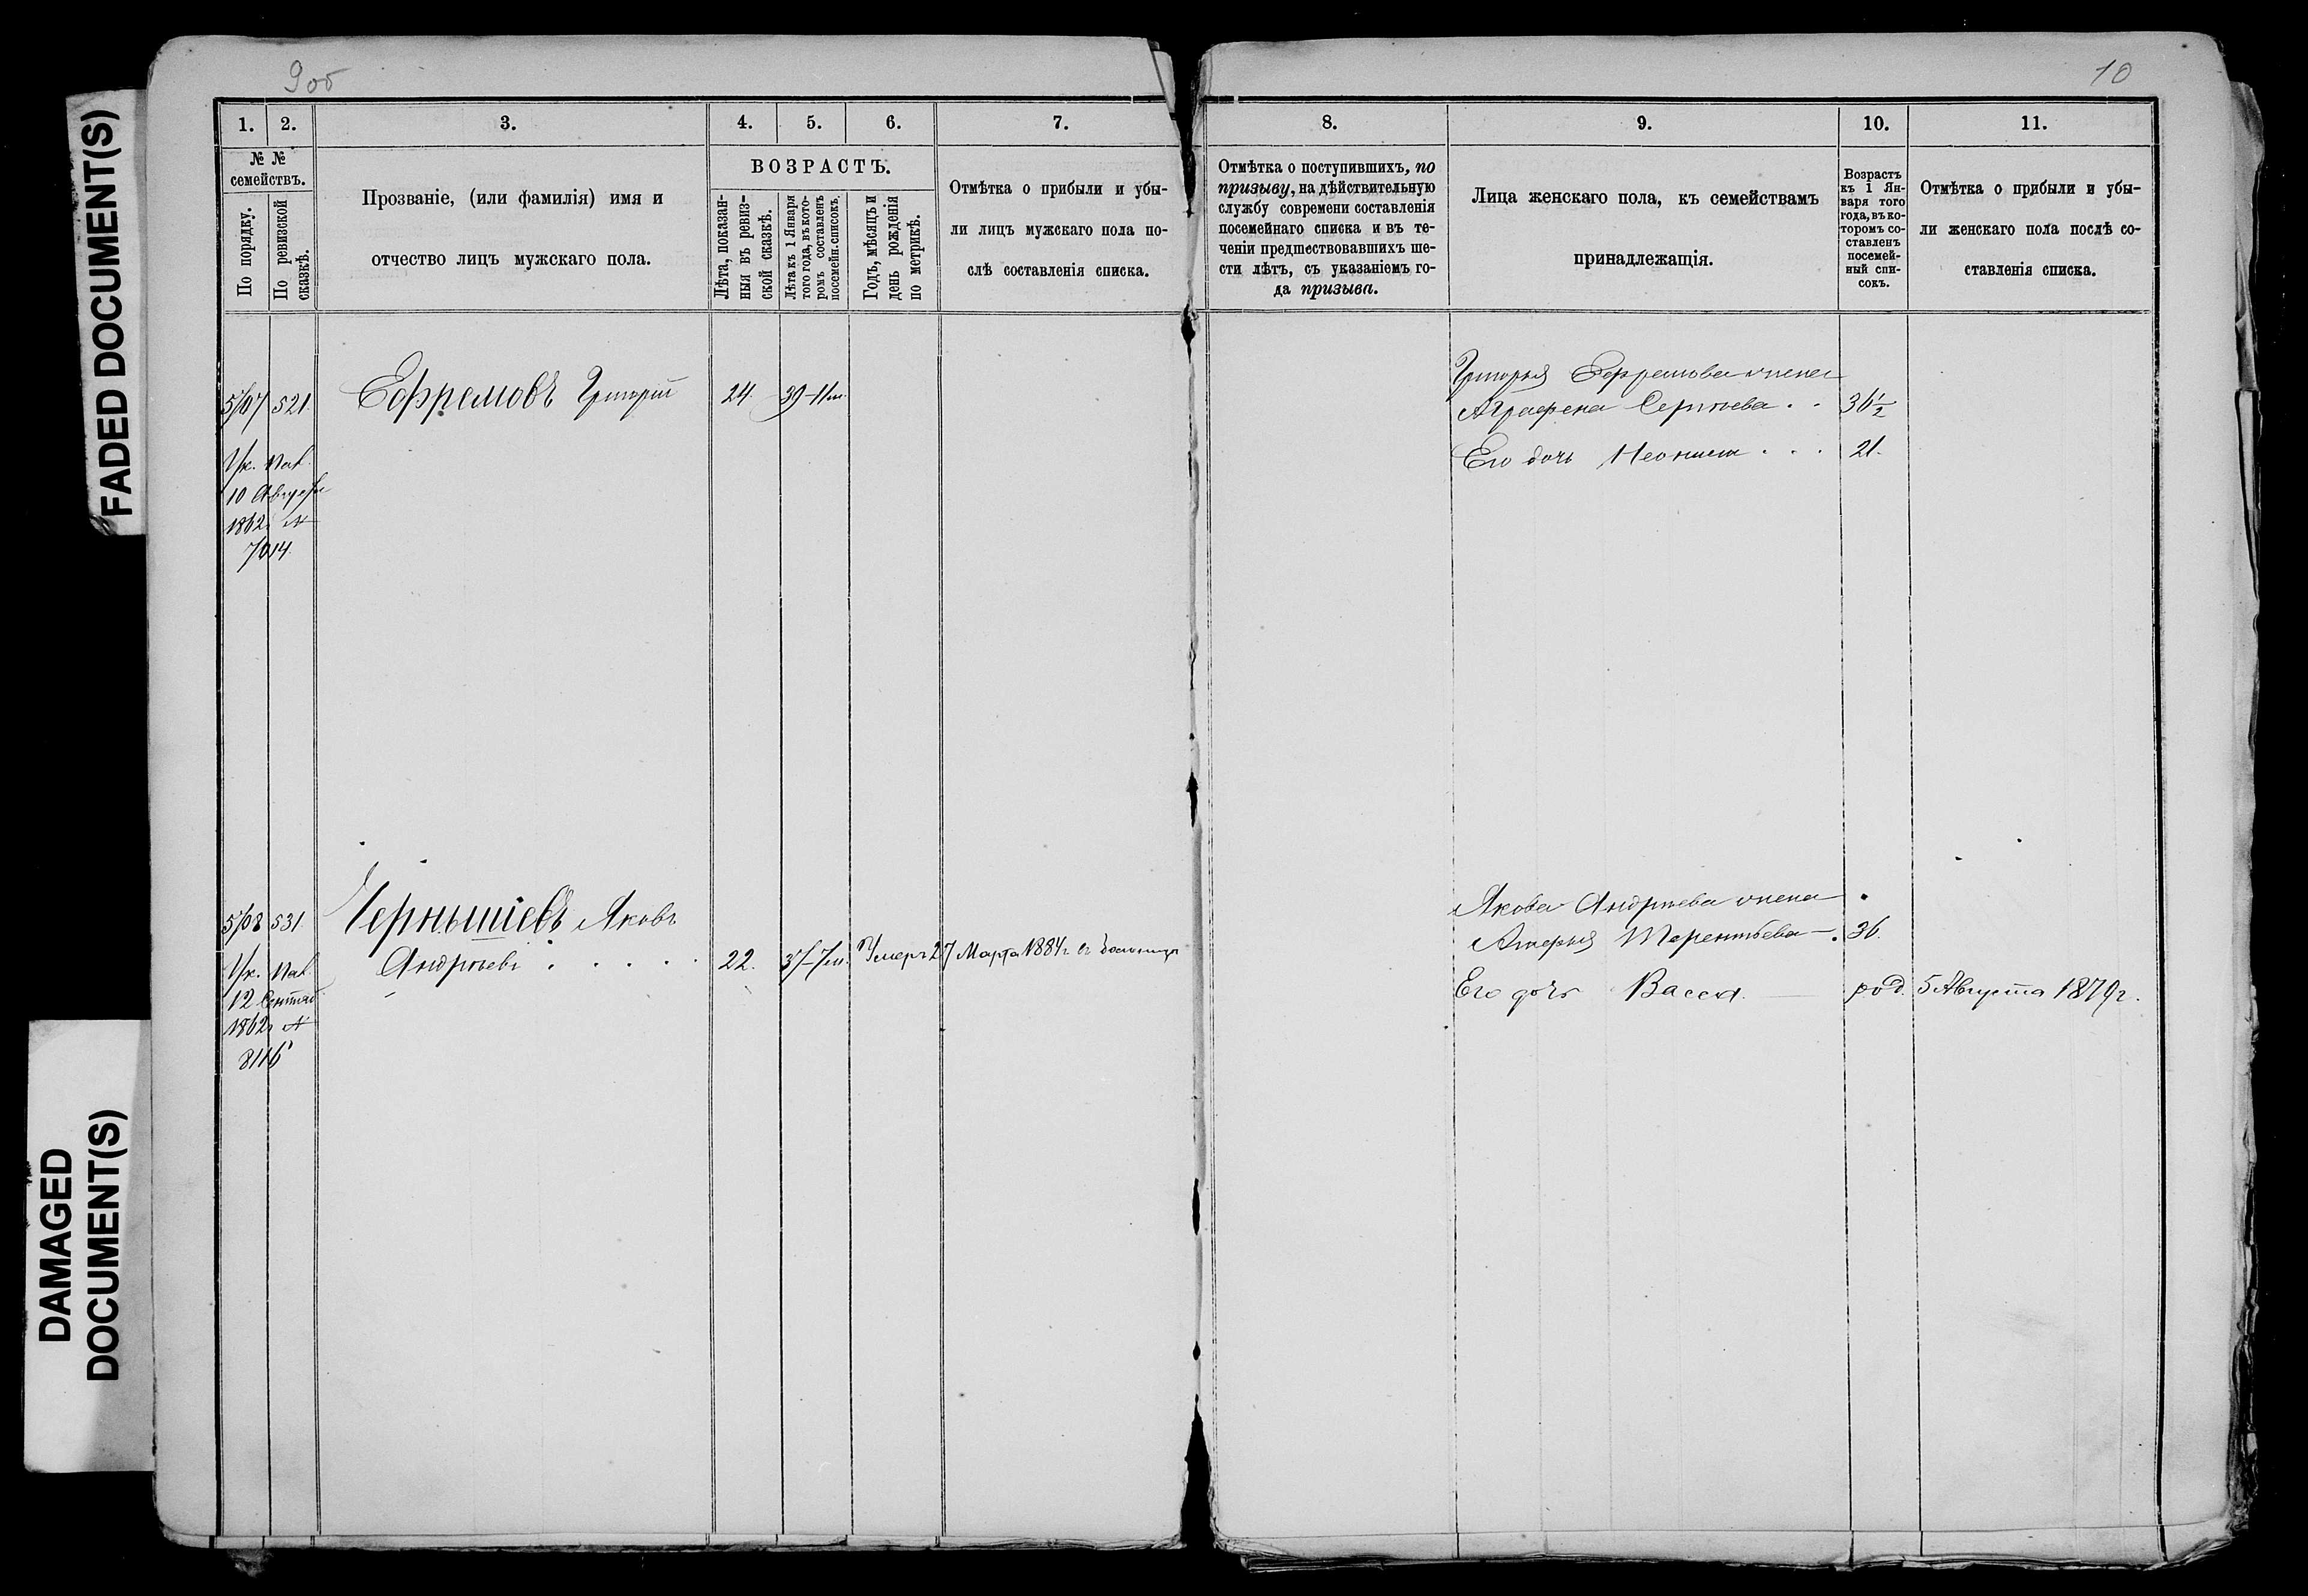 FADED DOCUMENT(S)
DAMAGED
DOCUMENT(S)
9об
10
1. 2. 3. 4. 5. 6. 7.
№ №
семействъ.
По порядку.
По ревизской
сказкѣ.
Прозваніе, (или фамилія) имя и
отчество лицъ мужскаго пола.
ВОЗРАСТЪ.
Лѣта, показан-
ныя въ ревиз-
ской сказкѣ.
Лѣта къ 1 Января
того года, въ кото-
ромъ составленъ
посемейн. списокъ.
Годъ, мѣсяцъ и
день рожденія
по метрикѣ.
Отмѣтка о прибыли и убы-
ли лицъ мужскаго пола по-
слѣ составленія списка.
8. 9. 10. 11.
Отмѣтка о поступившихъ, по
призыву, на дѣйствительную
службу современи составленія
посемейнаго списка и въ те-
ченіи предшествовавшихъ ше-
сти лѣтъ, съ указаніемъ го-
да призыва.
Лица женскаго пола, къ семействамъ
принадлежащія.
Возрастъ
къ 1 Ян-
варя того
года, въ ко-
торомъ со-
ставленъ
посемей-
ный спи-
сокъ.
Отмѣтка о прибыли и убы-
ли женскаго пола послѣ со-
ставленія списка.
507 521. Ефремовъ Григорій 24. 39-11м.
Ук. Пал.
10 Августа
1862 г №
7014.
Григорья Ефремова жена
Аграфена Сергѣева . . 36½
Его дочь . . . 21.
508 531. Чернышевъ Яковъ
Андреевъ . . . . . 22. 37-7м. Умеръ 27 Марта 1884 г. въ больницѣ
Ук. Пал.
12 Сентяб.
1862 г №
8116
Якова Андреева жена
Терентьева . 36.
Его дочь Васса. род. 5 Августа 1879 г.